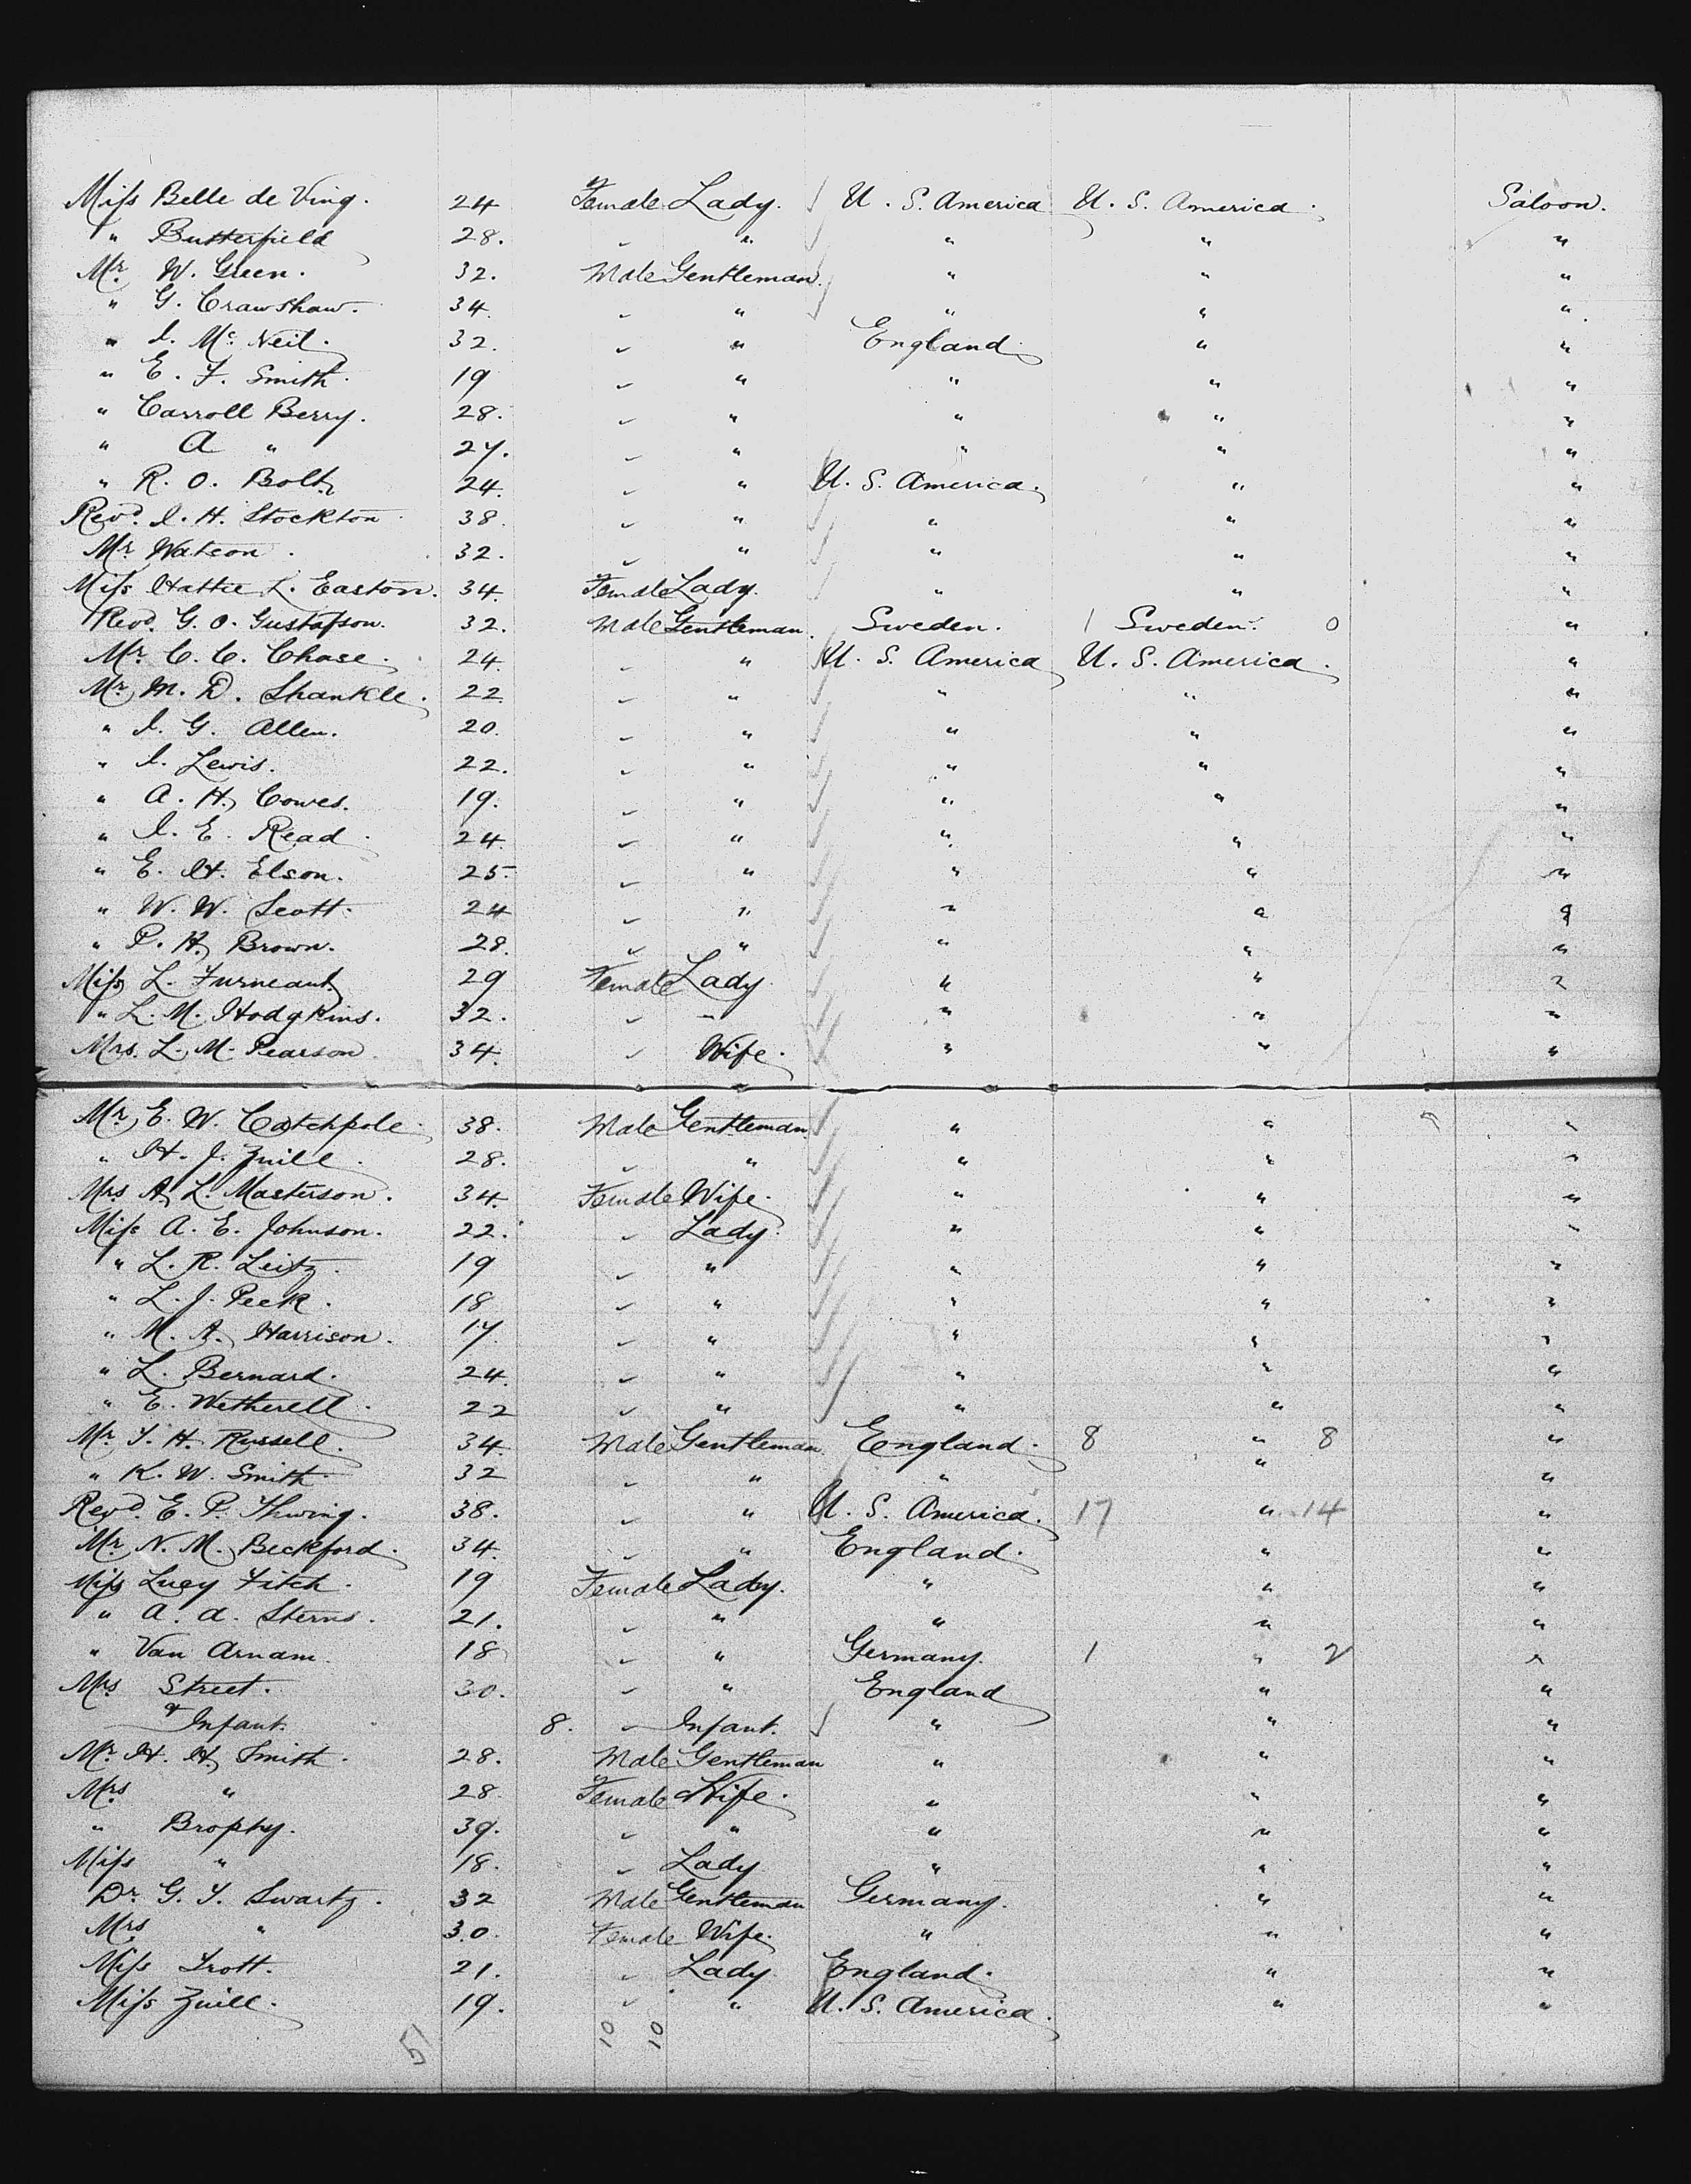 Miss Belle de Ving. 24 Female Lady. U. S. America U. S. America. Saloon.
" Butterfield 28. " " " " "
Mr. W. Green. 32. Male Gentleman. " " "
" G. Crawshaw. 34. " " " " "
" J. McNeil. 32. " " England. " "
" E. F. Smith. 19 " " " " "
" Carroll Berry. 28. " " " " "
" A " 27. " " " " "
" R. O. Bolt 24. " " U. S. America. " "
Revd. J. H. Stockton 38. " " " " "
Mr. Watson. 32. " " " " "
Miss Hattie L. Easton. 34. Female Lady. " " "
Revd. G. O. Gustafson. 32. Male Gentleman. Sweden. 1 Sweden. 0 "
Mr. C. C. Chase. 24. " " U. S. America U. S. America. "
Mr. M. D. Shankle. 22. " " " " "
" J. G. Allen. 20. " " " " "
" J. Lewis. 22. " " " " "
" A. H. Cowes. 19. " " " " "
" J. E. Read. 24. " " " " "
" E. H. Elson. 25. " " " " "
" W. W. Scott. 24 " " " " "
" P. H. Brown. 28. " " " " "
Miss L. Furneaux 29 Female Lady. " " "
" L. M. Hodgkins. 32. " " " " "
Mrs. L. M. Pearson. 34. " Wife. " " "
Mr. E. W. Catchpole. 38. Male Gentleman. " " "
" H. J. Zuill. 28. " " " " "
Mrs. A. L. Masterson. 34. Female Wife. " " "
Miss A. E. Johnson. 22. " Lady. " " "
" L. R. Leitz. 19 " " " " "
" L. J. Peck. 18 " " " " "
" M. A. Harrison. 17. " " " " "
" L. Bernard. 24. " " " " "
" E. Wetherell. 22 " " " " "
Mr. T. H. Russell. 34 Male Gentleman. England. 8 " 8 "
" K. W. Smith. 32 " " " " "
Revd. E. P. Thwing. 38. " " U. S. America. 17 " 14 "
Mr. N. M. Beckford. 34. " " England. " "
Miss Lucy Fitch. 19 Female Lady. " " "
" A. A. Sterns. 21. " " " " "
" Van Arnam. 18 " " Germany. 1 " 2 "
Mrs. Street. 30. " " England " "
& Infant. 8. " Infant. " " "
Mr. H. H. Smith. 28. Male Gentleman " " "
Mrs. " 28. Female Wife. " " "
" Brophy. 39. " " " " "
Miss " 18. " Lady " " "
Dr. G. T. Swartz. 32 Male Gentleman Germany. " "
Mrs. " 30. Female Wife. " " "
Miss Trott. 21. " Lady England. " "
Miss Zuill. 19. " " U. S. America. " "
51 10 10